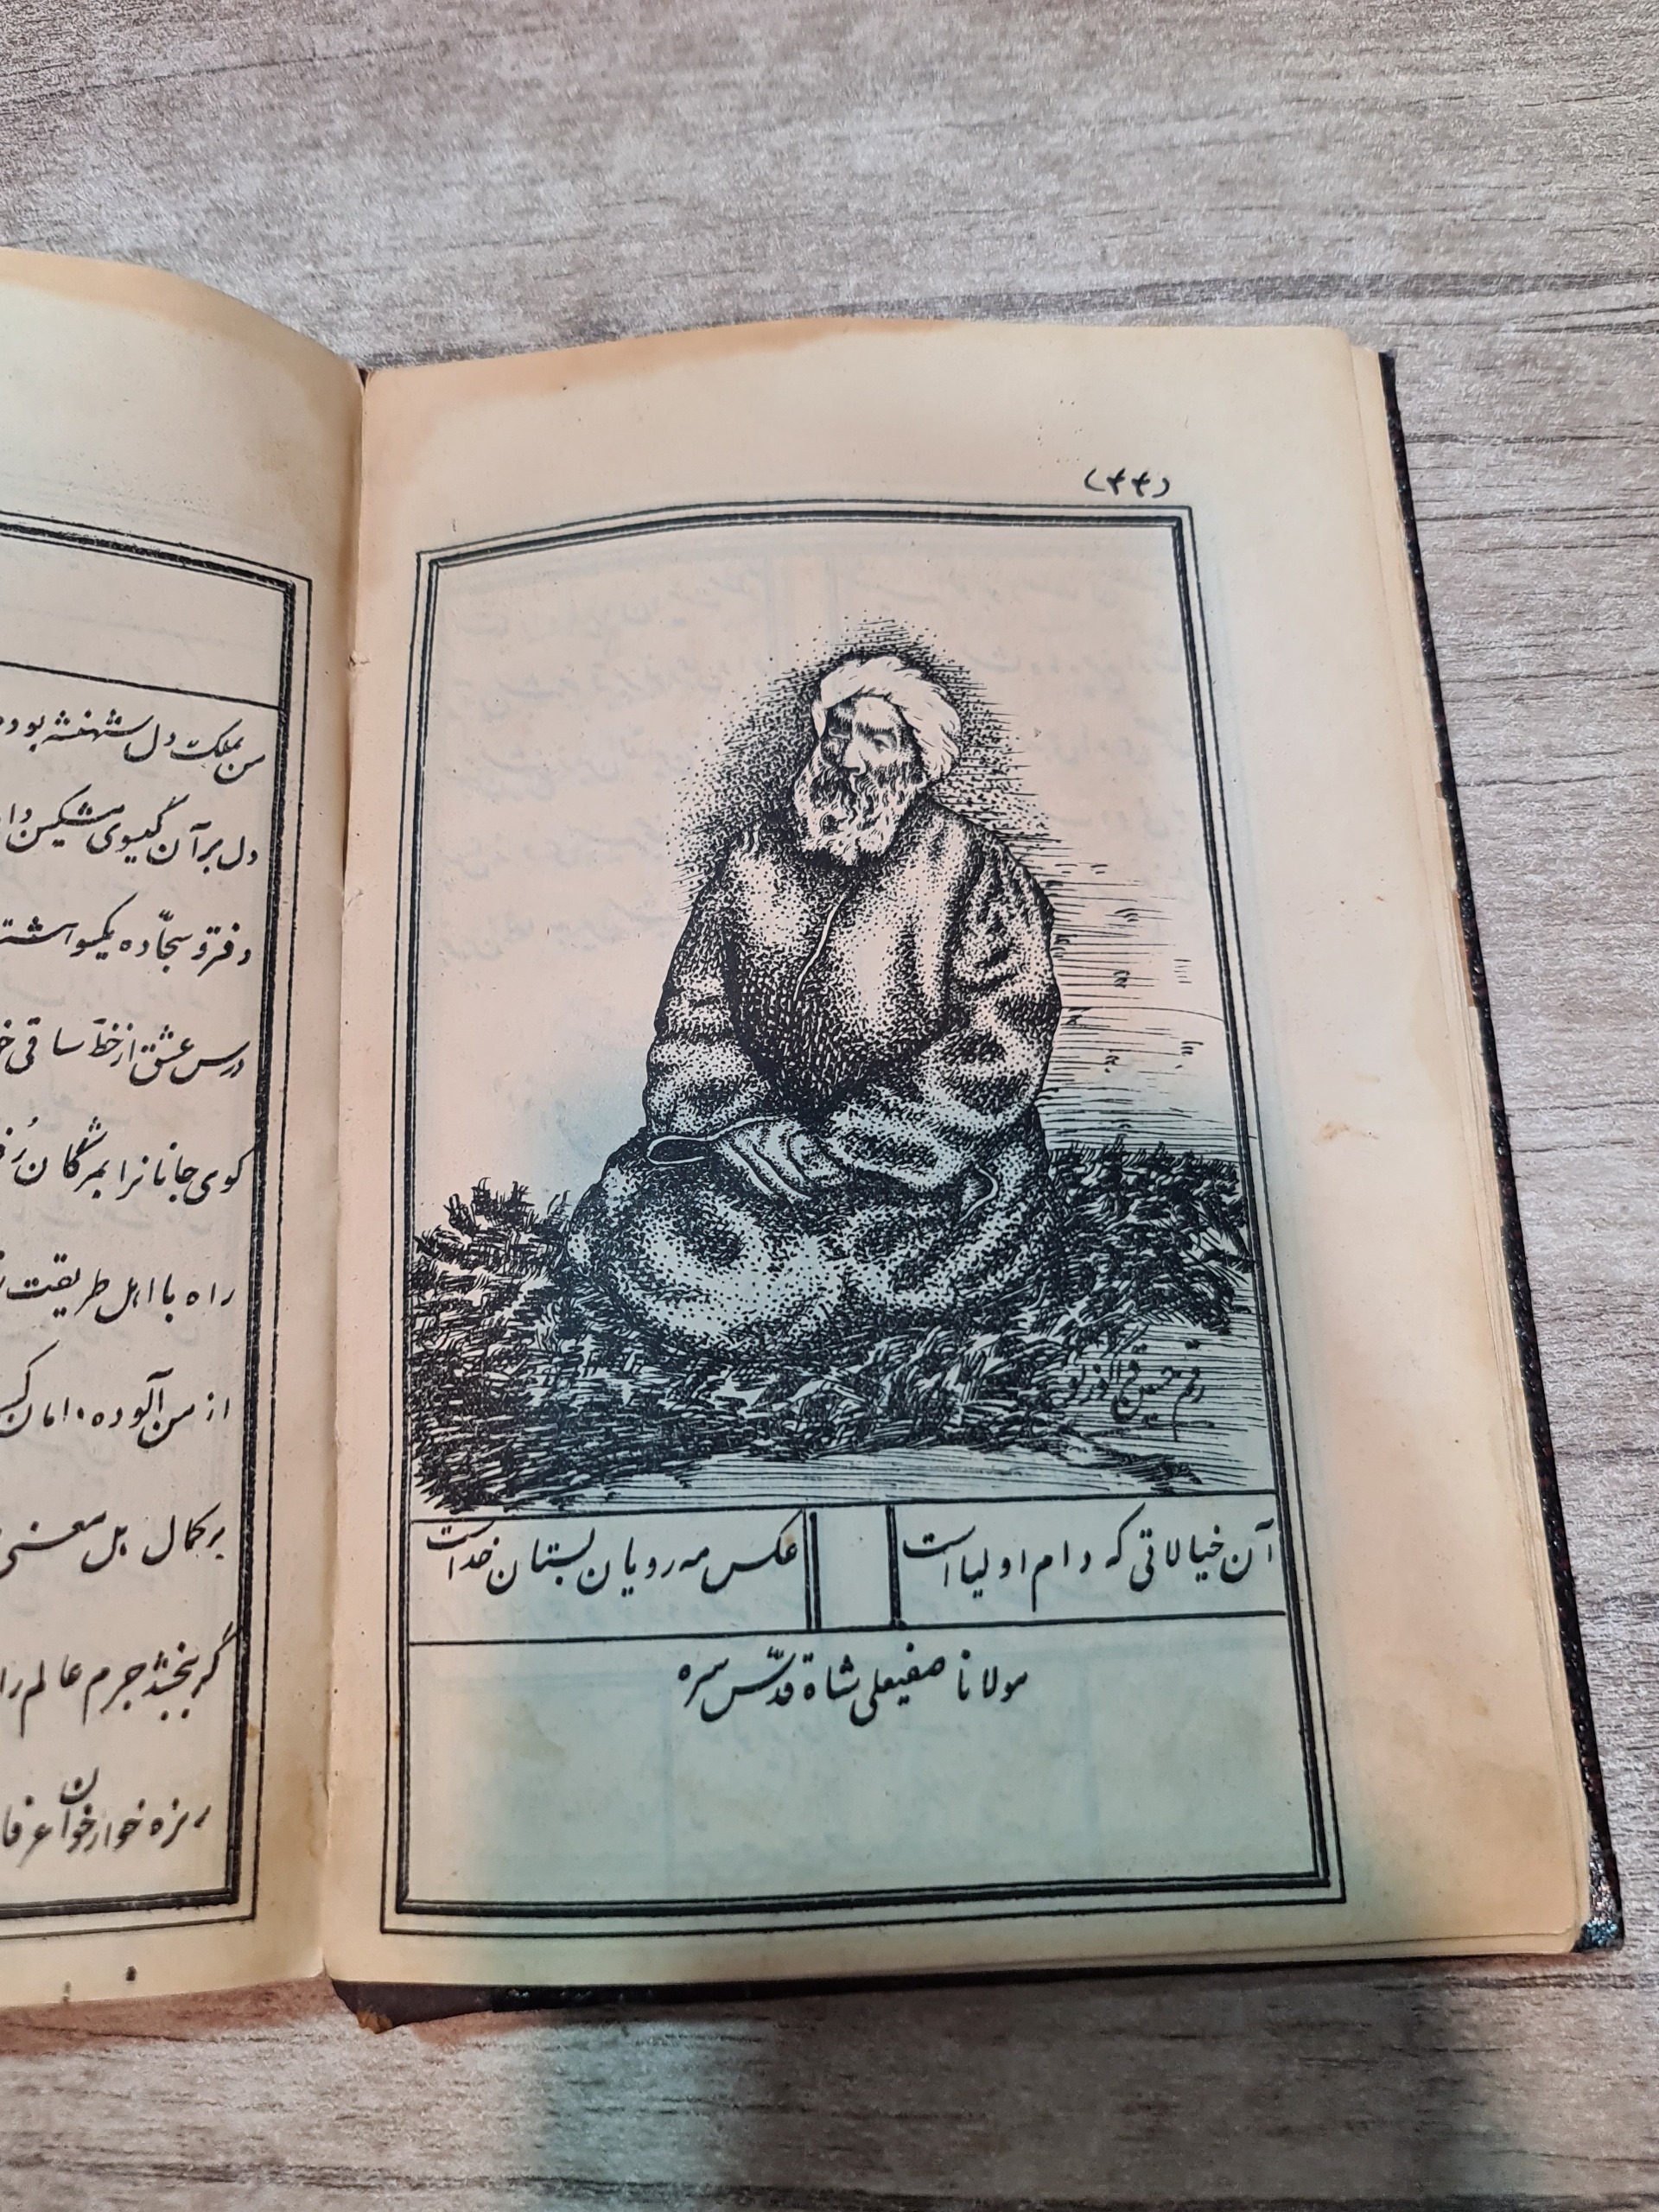 (۴۴)
رقم حسین
آن خیالاتی که دام اولیا است
عکس مه رویان بستان خداست
مولانا صفیعلی شاه قدّس سره
من بملک دل شهنشه بودم
دل بر آن گیسوی مشکین
دفتر و سجّاده یکسو
درس عشق از خطّ ساقی
کوی جانانرا بمژگان رُ
راه با اهل طریقت
از من آلوده دامان
بر کمال اهل معنی
گر ببخشد جرم عالم را
ریزه خوار خوان عرفا